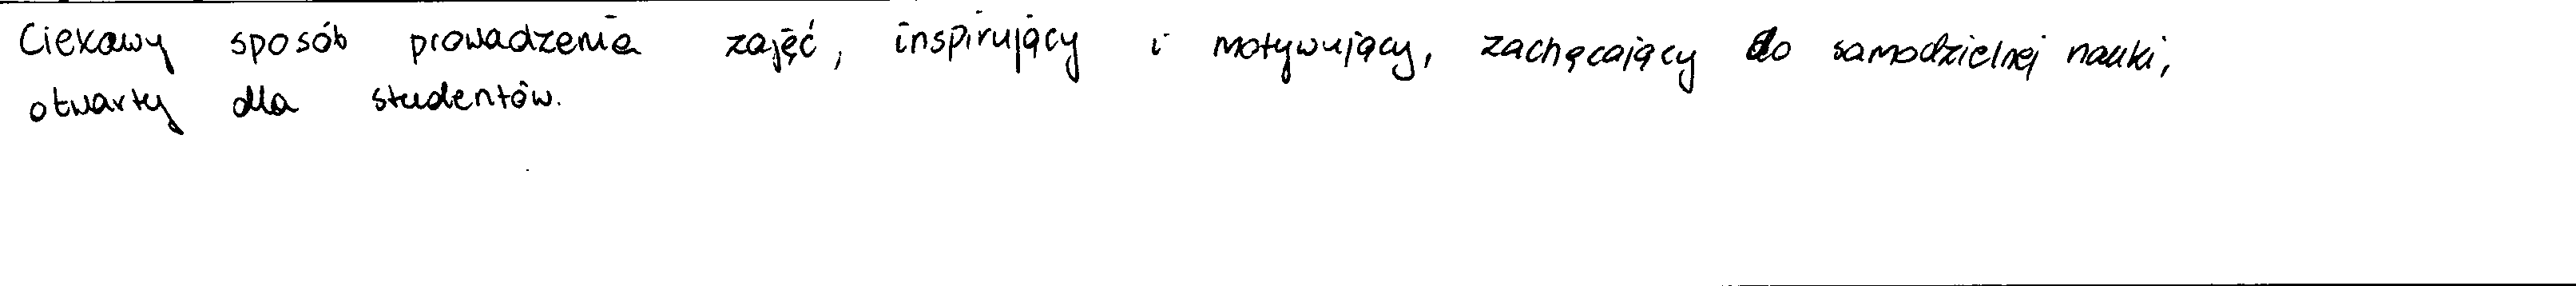 Ciekawy sposób prowadzenia zajęć, inspirujący i motywujący, zachęcający do samodzielnej nauki,
otwarty dla studentów.